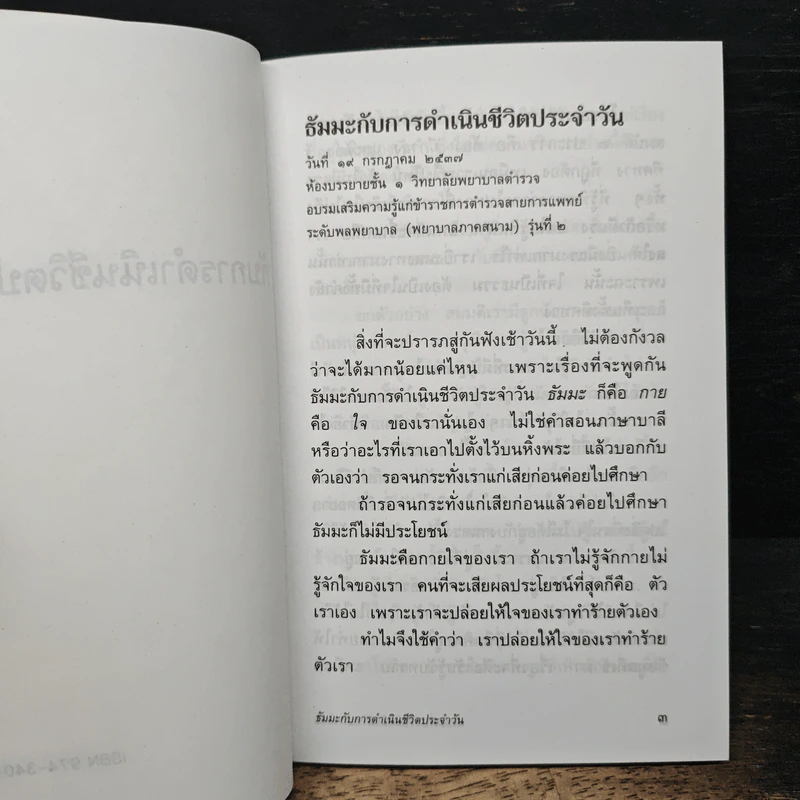 ธัมมะกับการดำเนินชีวิตประจำวัน
วันที่ ๑๙ กรกฎาคม ๒๕๓๗
ห้องบรรยายชั้น ๑ วิทยาลัยพยาบาลตำรวจ
อบรมเสริมความรู้แก่ข้าราชการตำรวจสายการแพทย์
ระดับพลพยาบาล (พยาบาลภาคสนาม) รุ่นที่ ๒
สิ่งที่จะปรารภสู่กันฟังเช้าวันนี้ ไม่ต้องกังวล
ว่าจะได้มากน้อยแค่ไหน เพราะเรื่องที่จะพูดกัน
ธัมมะกับการดำเนินชีวิตประจำวัน ธัมมะ ก็คือ กาย
คือ ใจ ของเรานั่นเอง ไม่ใช่คำสอนภาษาบาลี
หรือว่าอะไรที่เราเอาไปตั้งไว้บนหิ้งพระ แล้วบอกกับ
ตัวเองว่า รอจนกระทั่งเราแก่เสียก่อนค่อยไปศึกษา
ถ้ารอจนกระทั่งแก่เสียก่อนแล้วค่อยไปศึกษา
ธัมมะก็ไม่มีประโยชน์
ธัมมะคือกายใจของเรา ถ้าเราไม่รู้จักกายไม่
รู้จักใจของเรา คนที่จะเสียผลประโยชน์ที่สุดก็คือ ตัว
เราเอง เพราะเราจะปล่อยให้ใจของเราทำร้ายตัวเอง
ทำไมจึงใช้คำว่า เราปล่อยให้ใจของเราทำร้าย
ตัวเรา
ธัมมะกับการดำเนินชีวิตประจำวัน ๓